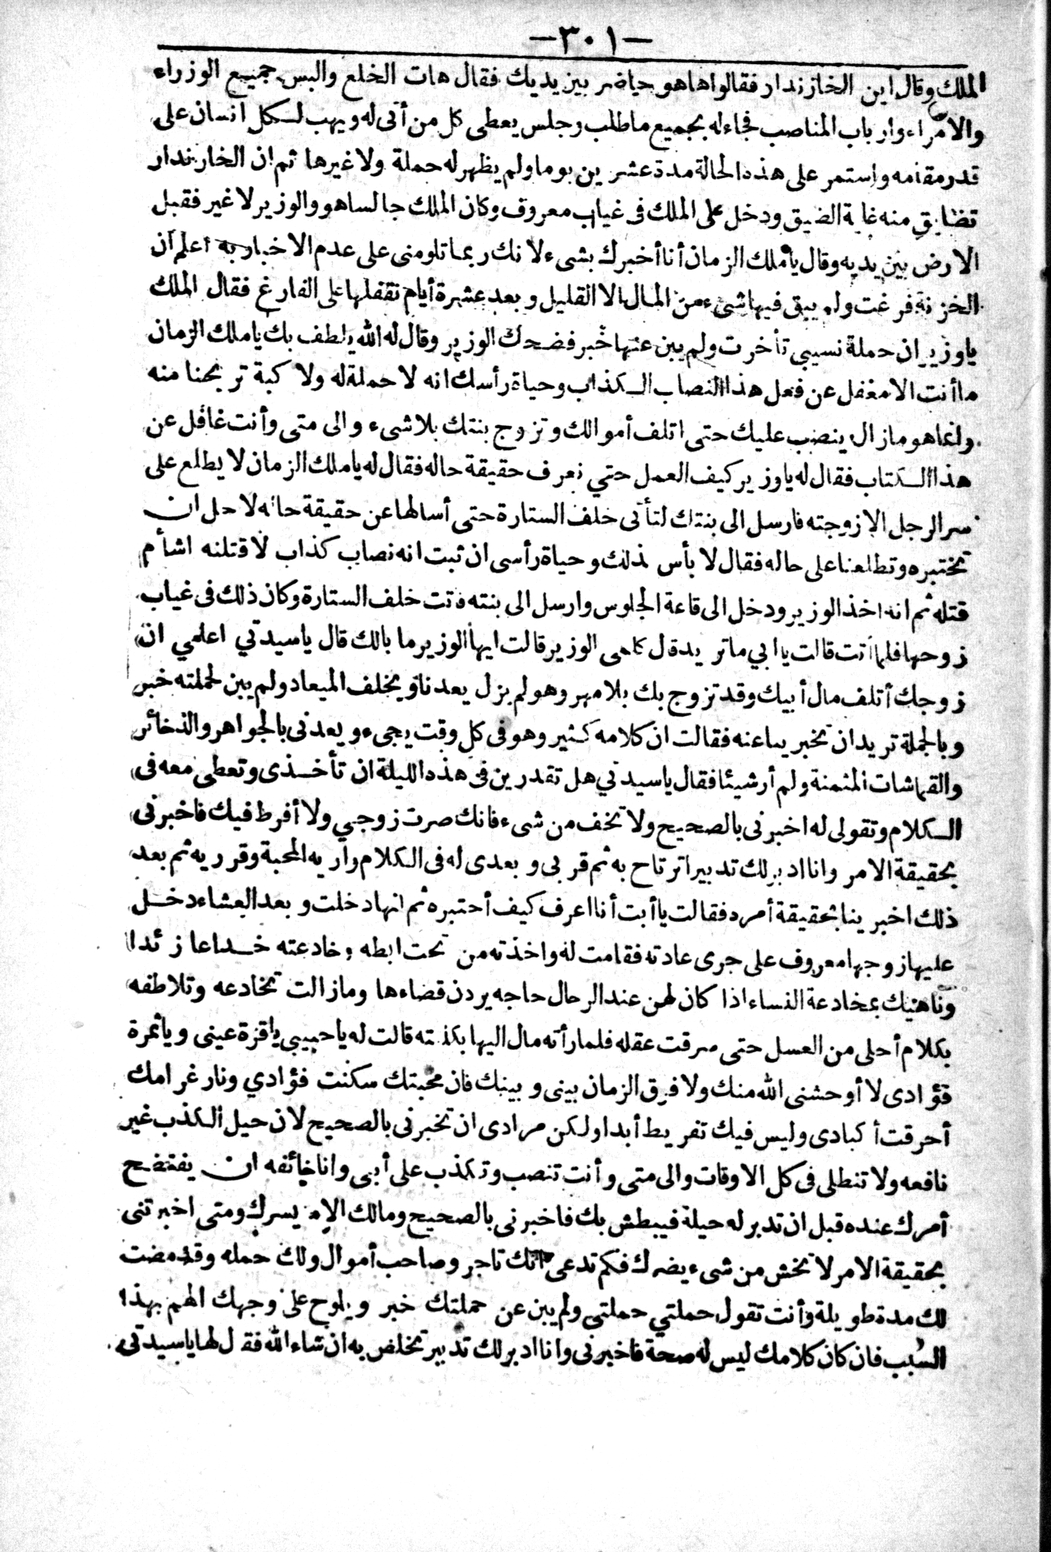 —٣٠١—
الملك وقال اين الخازندار فقالوا هاهو حاضر بين يديك فقال هات الخلع والبس جميع الوزراء
والامراء وارباب المناصب فجاءله بجميع ماطلب وجلس يعطى كل من أتى له ويهب لكل انسان على
قدر مقامه واستمر على هذه الحالة مدة عشرين يوما ولم يظهر له حملة ولا غيرها ثم ان الخازندار
تضايق منه غاية الضيق ودخل على الملك فى غياب معروف وكان الملك جالسا هو والوزير لا غير فقبل
الارض بين يديه وقال ياملك الزمان أنا أخبرك بشىء لانك ربما تلومنى على عدم الاخبار به اعلم أن
الخزنة فرغت ولم يبق فيها شىء من المال الا القليل وبعد عشرة أيام نقفلها على الفارغ فقال الملك
ياوزير ان حملة نسيبي تأخرت ولم يبن عنها خبر فضحك الوزير وقال له الله يلطف بك ياملك الزمان
ماأنت الا مغفل عن فعل هذا النصاب الكذاب وحياة رأسك انه لا حملة له ولا كبة تريحنا منه
وانما هو مازال ينصب عليك حتى اتلف أموالك وتزوج بنتك بلاشىء والى متى وأنت غافل عن
هذا الكتاب فقال له ياوزير كيف العمل حتي نعرف حقيقة حاله فقال له ياملك الزمان لا يطلع على
سر الرجل الا زوجته فارسل الى بنتك لتأتى خلف الستارة حتى أسالها عن حقيقة حاله لاجل ان
تختبره وتطلعنا على حاله فقال لا بأس لذلك وحياة رأسى ان ثبت انه نصاب كذاب لاقتلنه اشأم
قتله ثم انه اخذ الوزير ودخل الى قاعة الجلوس وارسل الى بنته فاتت خلف الستارة وكان ذلك فى غياب
زوجها فلما أتت قالت ياابي ماتريد قال كلمى الوزير قالت ايها الوزير ما بالك قال ياسيدتي اعلمي ان
زوجك أتلف مال أبيك وقد تزوج بك بلا مهر وهو لم يزل يعدنا ويخلف الميعاد ولم يبن لحملته خبر
وبالجملة تريد ان تخبرينا عنه فقالت ان كلامه كثير وهو فى كل وقت يجىء ويعدنى بالجواهر والذخائر
والقماشات المثمنة ولم أر شيئا فقال ياسيدتي هل تقدرين فى هذه الليلة ان تأخذى وتعطى معه فى
الكلام وتقولى له اخبرنى بالصحيح ولا تخف من شىء فانك صرت زوجي ولا أفرط فيك فاخبرنى
بحقيقة الامر وانا ادبر لك تدبيرا ترتاح به ثم قربى وبعدى له فى الكلام واريه المحبة وقرريه ثم بعد
ذلك اخبرينا بحقيقة أمره فقالت ياأبت أنا اعرف كيف أختبره ثم انها دخلت وبعد العشاء دخل
عليها زوجها معروف على جرى عادته فقامت له واخذته من تحت ابطه وخادعته خداعا زئدا
وناهيك بمخادعة النساء اذا كان لهن عند الرجال حاجه يردن قضاءها ومازالت تخادعه وتلاطفه
بكلام أحلى من العسل حتى سرقت عقله فلما رأته مال اليها بكليته قالت له ياحبيبي ياقرة عينى وياثمرة
فؤادى لا أوحشنى الله منك ولا فرق الزمان بينى وبينك فان محبتك سكنت فؤادي ونار غرامك
أحرقت أكبادى وليس فيك تفريط أبدا ولكن مرادى ان تخبرنى بالصحيح لان حيل الكذب غير
نافعه ولا تنطلى فى كل الاوقات والى متى وأنت تنصب وتكذب على أبى وانا خائفه ان يفتضح
أمرك عنده قبل ان تدبر له حيلة فيبطش بك فاخبرنى بالصحيح ومالك الا ما يسرك ومتى اخبرتنى
بحقيقة الامر لا تخش من شىء يضرك فكم تدعى انك تاجر وصاحب أموال ولك حمله وقد مضت
لك مدة طويلة وأنت تقول حملتي حملتى ولم يبن عن حملتك خبر ويلوح على وجهك الهم بهذا
السبب فان كان كلامك ليس له صحة فاخبرنى وانا ادبر لك تدبير تخلص به ان شاء الله فقال لها ياسيدتى